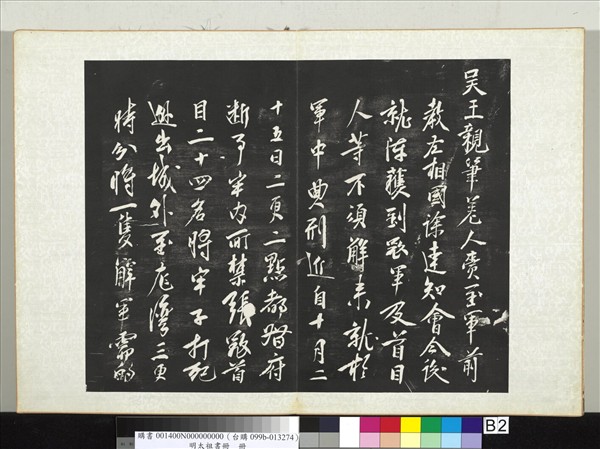 吴王親筆差人賫至軍前
教左相國徐達知會今後
就陣獲到寇軍及首目
人等不須解来就於
軍中典刑近自十月二
十五日二更二點都督府
断事牢内所禁張寇首
目二十四名將牢子打死
出城外至龍灣三更
時分將一隻解軍需的
購書 001400N000000000 (台購 099b-013274)
明太祖書冊 冊
B2